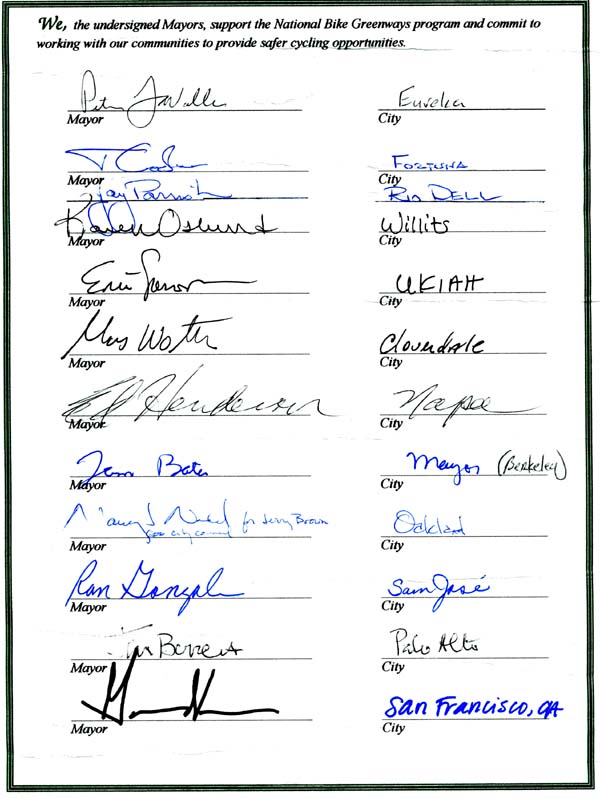 We, the undersigned Mayors, support the National Bike Greenways program and commit to
working with our communities to provide safer cycling opportunities.
Eureka
Mayor City
Fortuna
Mayor City
Jay Parrish Rio DELL
Karen Oslund Willits
Mayor City
Eric UKIAH
Mayor City
Cloverdale
Mayor City
Ed Henderson Napa
Mayor City
Tom Bates Mayor (Berkeley)
Mayor City
Nancy J Nadel for Jerry Brown Oakland
Mayor City
Ron Gonzales San José
Mayor City
Palo Alto
Mayor City
San Francisco, CA
Mayor City